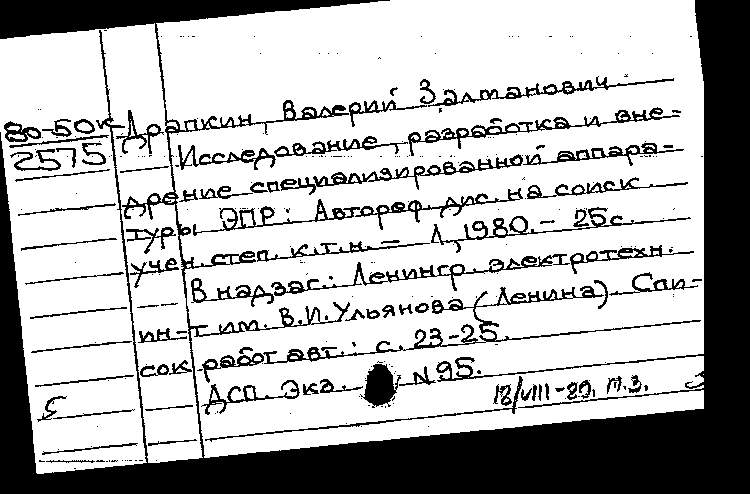 80-50к
2575
Драпкин, Валерий Залманович.
Исследование, разработка и вне-
дрение специализированной аппара-
туры ЭПР: Автореф. дис. на соиск.
учен. степ. к.т.н. – Л., 1980. – 25с.
В надзаг.: Ленингр. электротехн.
ин-т им. В.И.Ульянова (Ленина). Спи-
сок работ авт.: с. 23-25.
ДСП. Экз. N 95.
5
18/VIII-80. т.з.